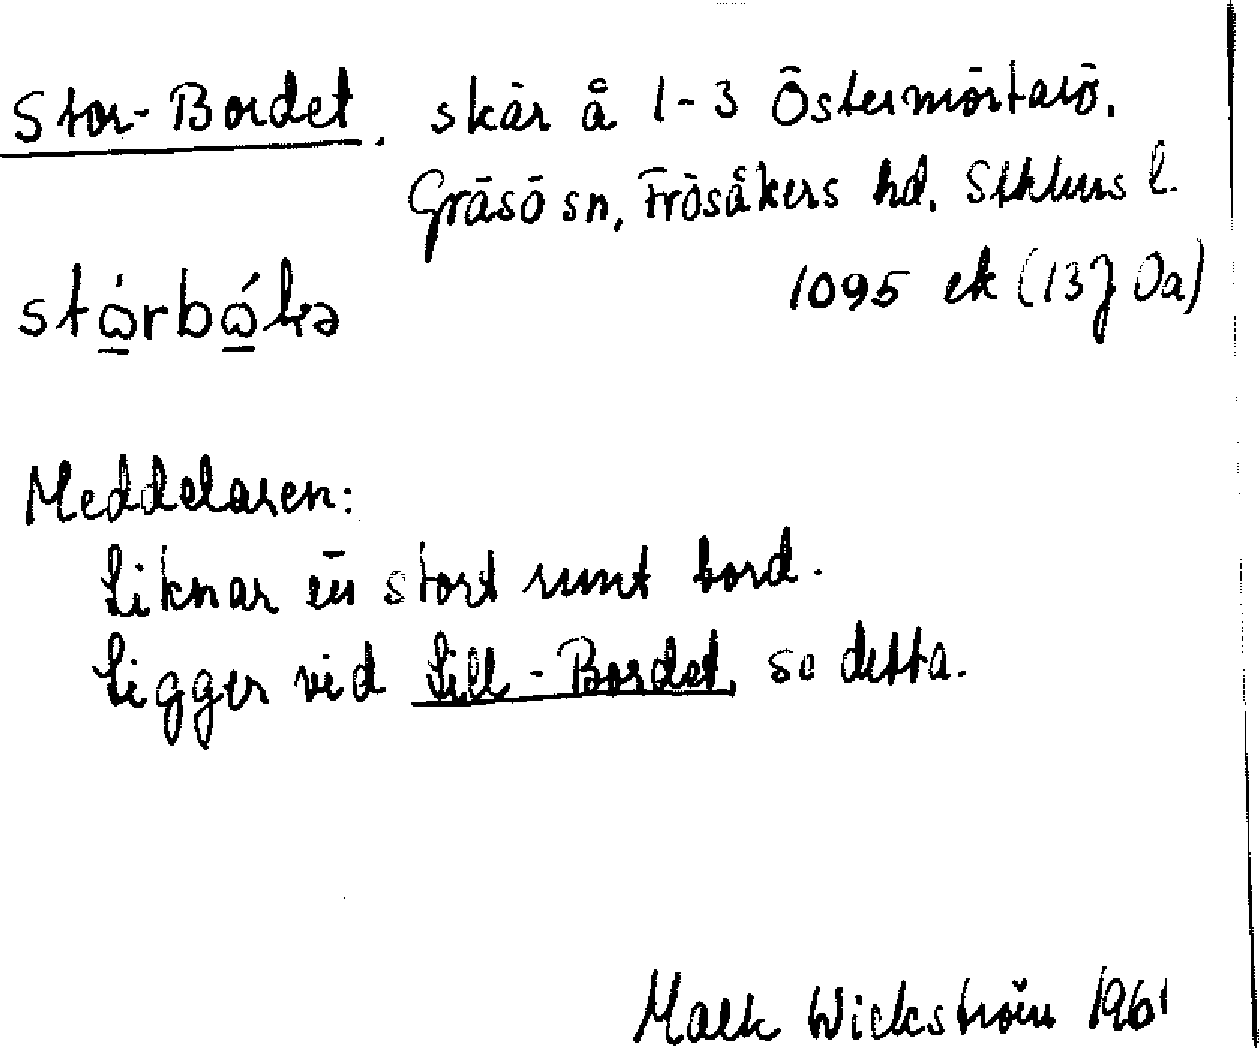 Stor-Bordet. skär å 1-3 Östermörtarö.
Gräsö sn, Frösåkers hd. Sthlms l.
1095 ek (13j 0a)
Meddelaren:
Liknar ett stort runt bord.
Ligger vid Lill-Bordet, se detta.
Wickström 1961